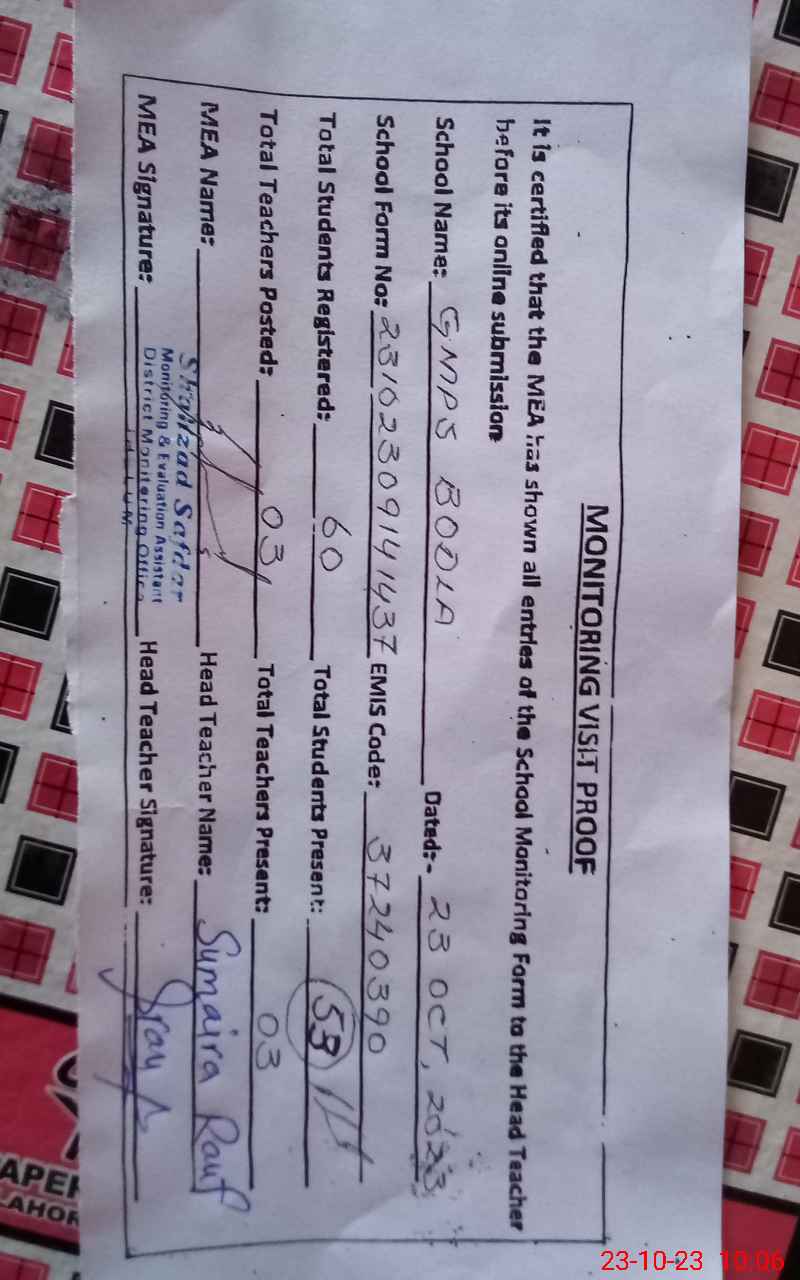 MONITORING VISIT PROOF
It is certified that the MEA has shown all entries of the School Monitoring Form to the Head Teacher
before its online submission
School Name: GMPS BODLA Dated:- 23 OCT, 2023
School Form No: 23102309141437 EMIS Code: 37240390
Total Students Registered: 60 Total Students Present: 53
Total Teachers Posted: 03 Total Teachers Present: 03
MEA Name: Head Teacher Name: Sumaira Rauf
Shahzad Safdar
Monitoring & Evaluation Assistant
District Monitoring Office
MEA Signature: Head Teacher Signature:
PAPER
LAHOR
23-10-23 10:06